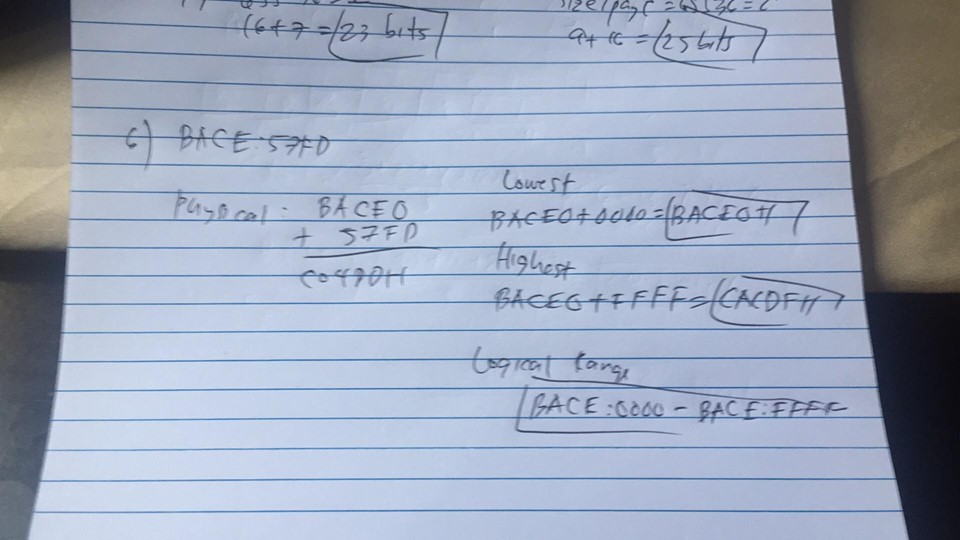 16+7 = 23 bits
9+16 = 25 bits
6) BACE:57FD
Physical: BACE0
+ 57FD
C04DDH
Lowest
BACE0+0000=BACE0H
Highest
BACE0+FFFF=CACDFH
Logical Range
BACE:0000 - BACE:FFFF